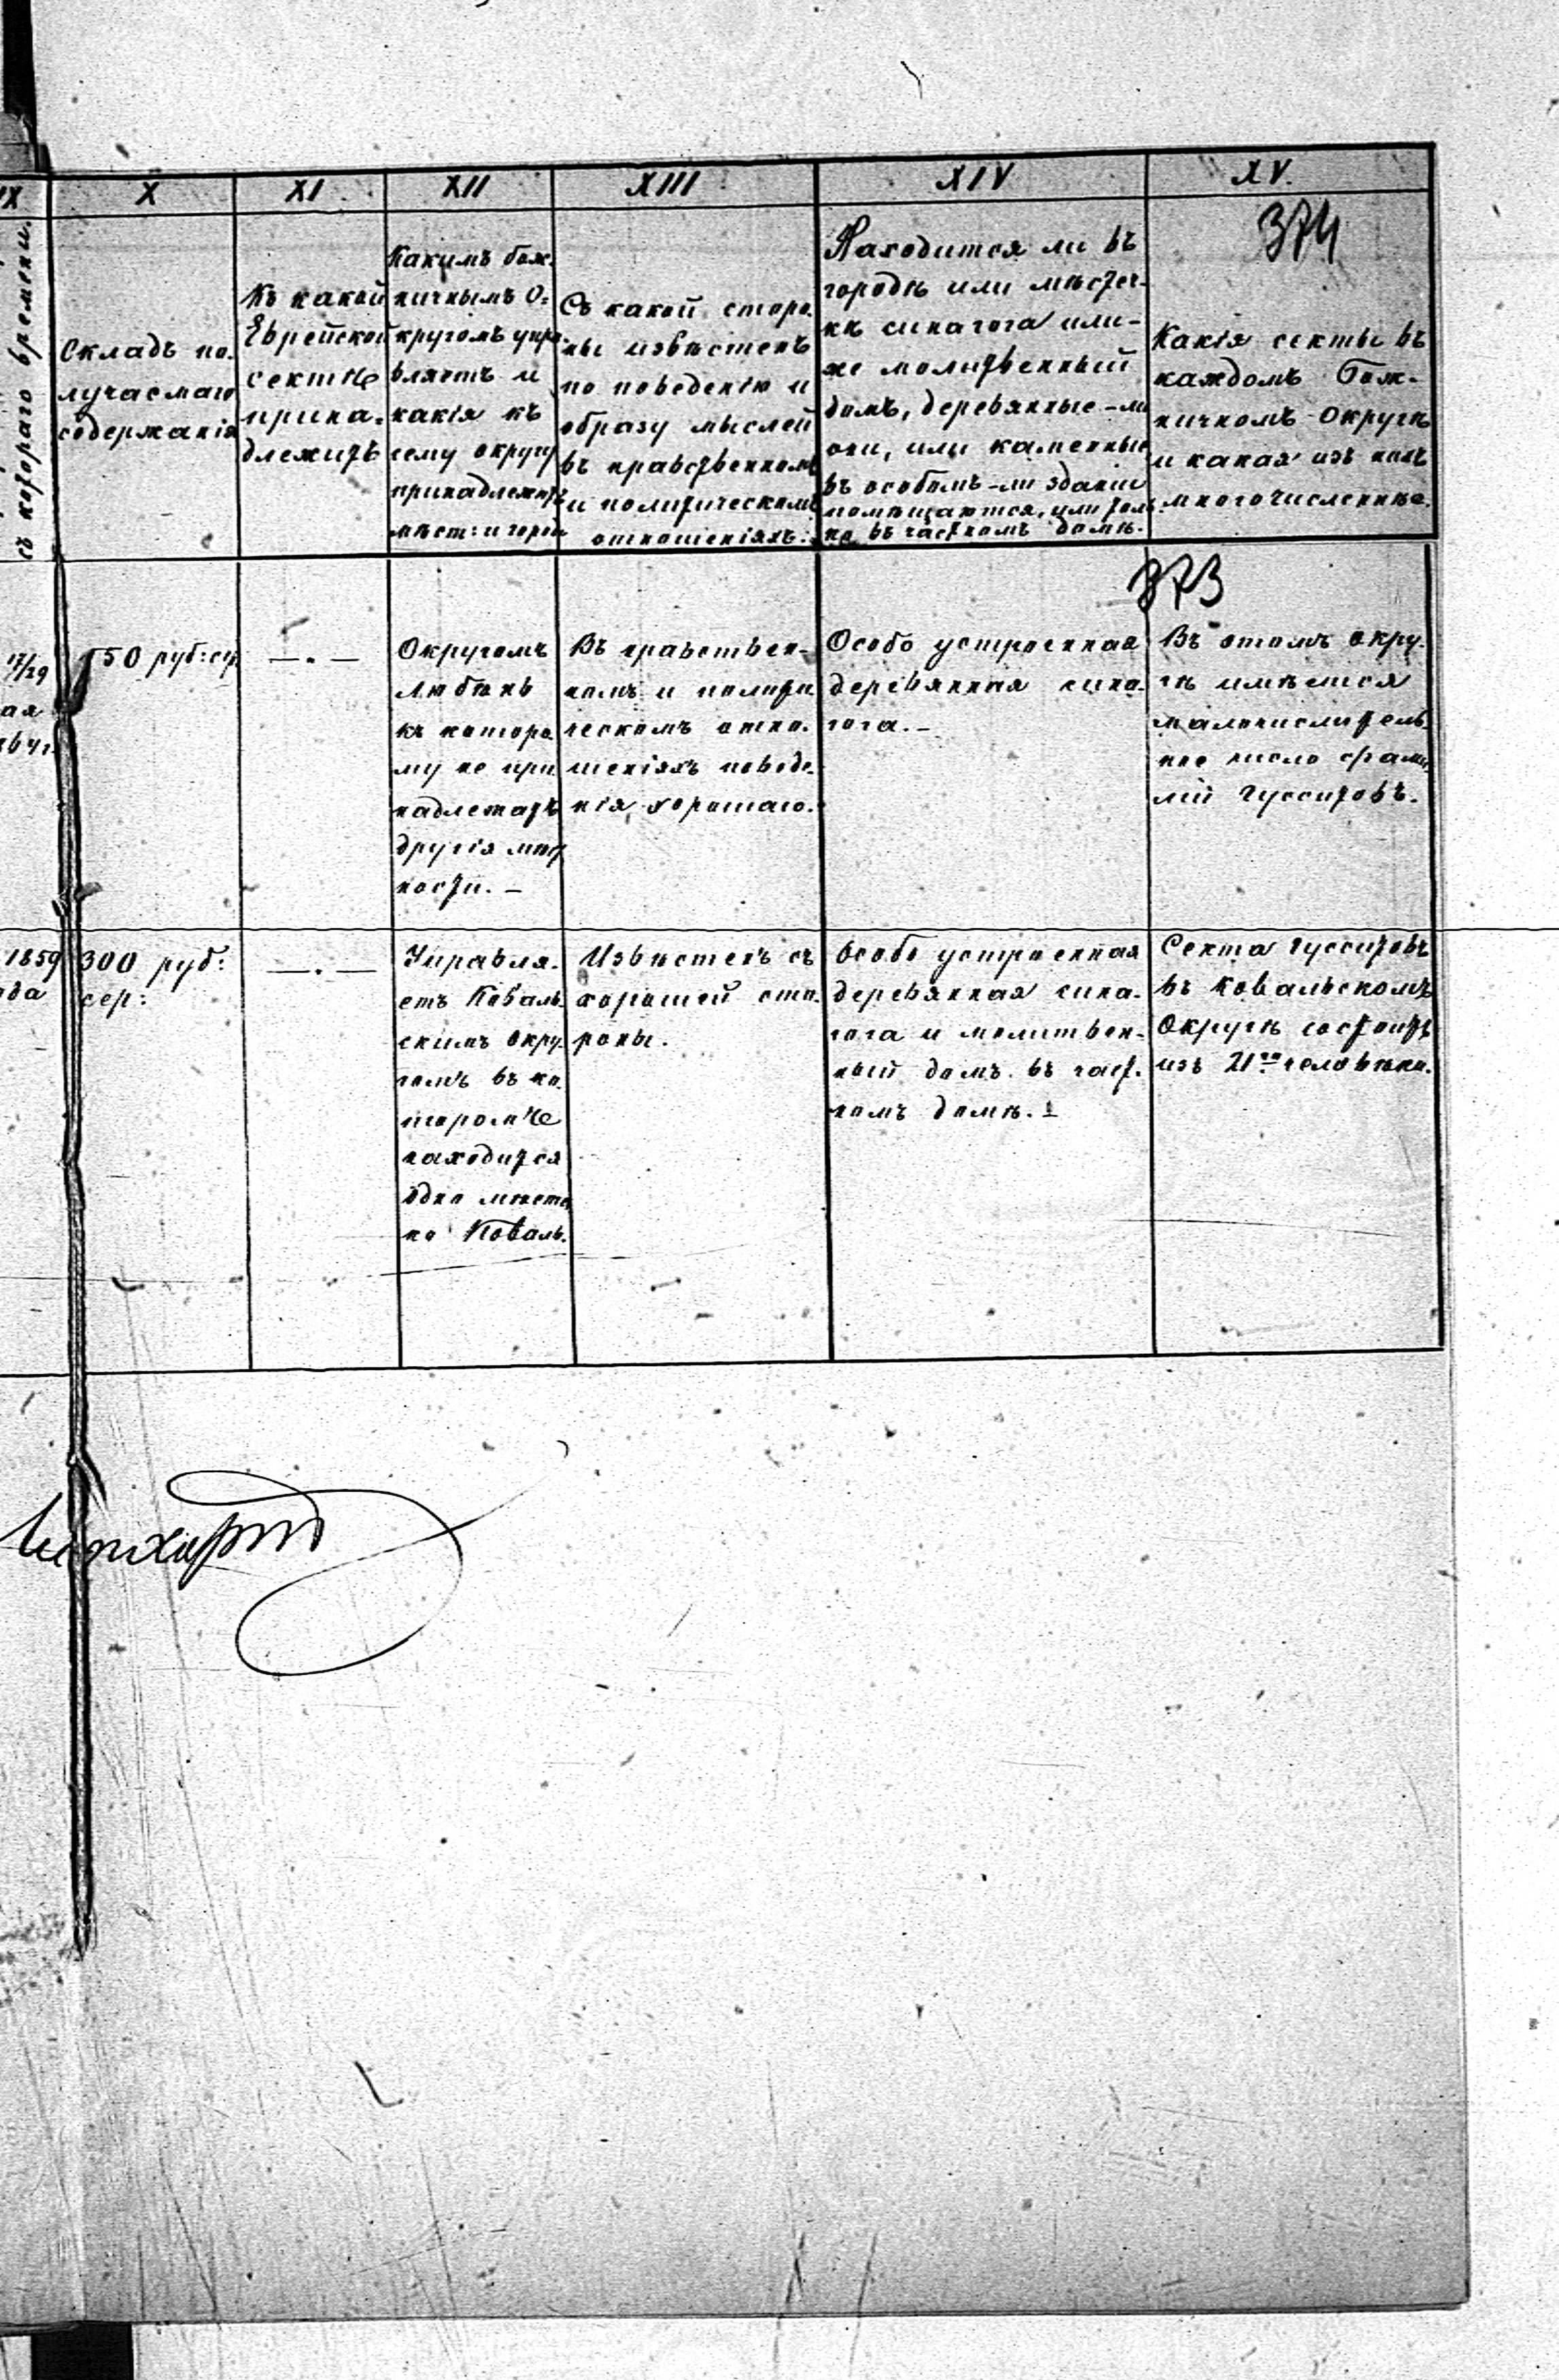 IX
съ котораго времени.
X
XI
XII
XIII
XIV
XV.
374
Складъ по-
лучаемаго
содержанія
Къ какой
Еврейской
сектѣ
прина-
длежитъ
Какимъ бож-
ничнымъ О-
кругомъ упра-
вляетъ и
какія къ
сему округу
принадлежатъ
мѣст: и город
Съ какой сторо-
ны извѣстенъ
по поведенію и
образу мыслей
въ нравственномъ
и политическомъ
отношеніяхъ.
Находится ли въ
городѣ или мѣстеч-
кѣ синагога или-
же молитвенный
домъ, деревянные-ли
они, или каменные
въ особомъ-ли зданіи
помѣщаются, или толь-
ко въ частномъ домѣ.
Какія секты въ
каждомъ Бож-
ничномъ Округѣ
и какая изъ нихъ
многочисленнѣе.
373
17/29
ая
150 руб: ср
— . —
Округомъ
Любень
къ которо
му не при
надлежатъ
другія мѣст
ности. –
Въ нравствен-
номъ и полити
ческомъ отно-
шеніяхъ поведе-
нія хорошаго.
Особо устроенная
деревянная сина-
гога. –
Въ этомъ окру-
гѣ имѣется
малочислитель
ное число фами-
лій Гусситовъ.
1859
ода
300 руб:
сер:
— . —
Управля-
етъ Коваль-
скимъ окру-
гомъ въ ко-
торомъ
находится
одно мѣсте
ко Коваль.
Извѣстенъ съ
хорошей сто-
роны.
Особо устроенная
деревянная сина-
гога и молитвен-
ный домъ въ част-
номъ домѣ. –
Секта Гусситовъ
въ Ковальскомъ
Округѣ состоитъ
изъ 21го человѣка.